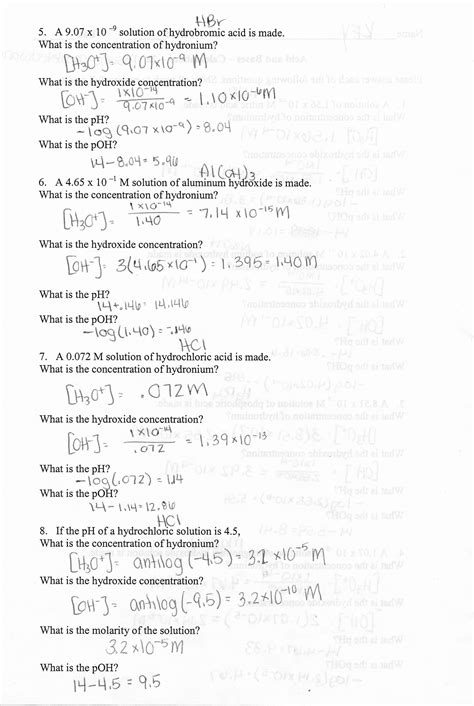 HBr
5. A 9.07 x 10 ⁻⁹ solution of hydrobromic acid is made.
What is the concentration of hydronium?
[H₃O⁺] = 9.07x10⁻⁹ M
What is the hydroxide concentration?
[OH⁻] = 1x10⁻¹⁴ / 9.07x10⁻⁹ = 1.10 x10⁻⁶ M
What is the pH?
-log (9.07 x10⁻⁹) = 8.04
What is the pOH?
14 - 8.04 = 5.96
Al(OH)₃
6. A 4.65 x 10 ⁻¹ M solution of aluminum hydroxide is made.
What is the concentration of hydronium?
[H₃O⁺] = 1x10⁻¹⁴ / 1.40 = 7.14 x10⁻¹⁵ M
What is the hydroxide concentration?
[OH⁻] = 3(4.65x10⁻¹) = 1.395 = 1.40 M
What is the pH?
14 + .146 = 14.146
What is the pOH?
-log (1.40) = -.146
HCl
7. A 0.072 M solution of hydrochloric acid is made.
What is the concentration of hydronium?
[H₃O⁺] = .072 M
What is the hydroxide concentration?
[OH⁻] = 1x10⁻¹⁴ / .072 = 1.39 x10⁻¹³
What is the pH?
-log (.072) = 1.14
What is the pOH?
14 - 1.14 = 12.86
HCl
8. If the pH of a hydrochloric solution is 4.5,
What is the concentration of hydronium?
[H₃O⁺] = antilog (-4.5) = 3.2 x10⁻⁵ M
What is the hydroxide concentration?
[OH⁻] = antilog (-9.5) = 3.2x10⁻¹⁰ M
What is the molarity of the solution?
3.2x10⁻⁵ M
What is the pOH?
14 - 4.5 = 9.5